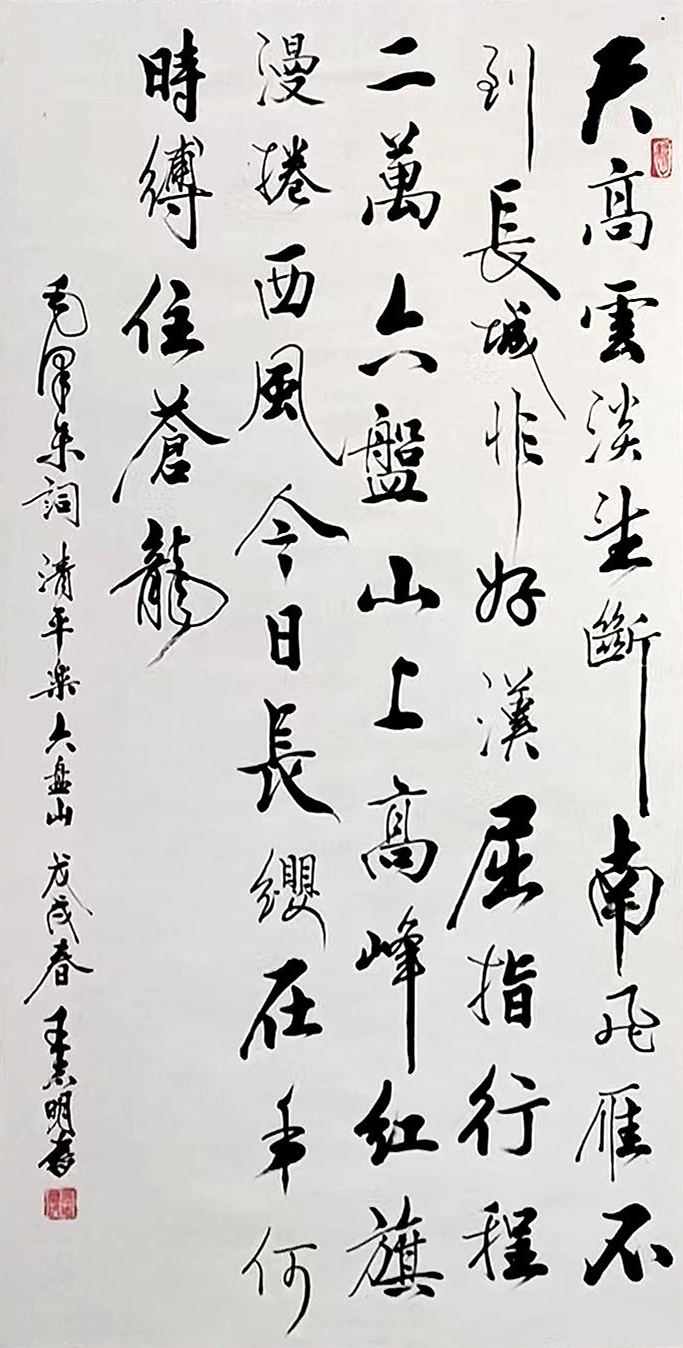 天高雲淡望斷南飛雁不
到長城非好漢屈指行程
二萬六盤山上高峰红旗
漫捲西風今日長纓在手何
時縛住蒼龍
毛澤东詞清平楽六盘山戊戌春王志明书